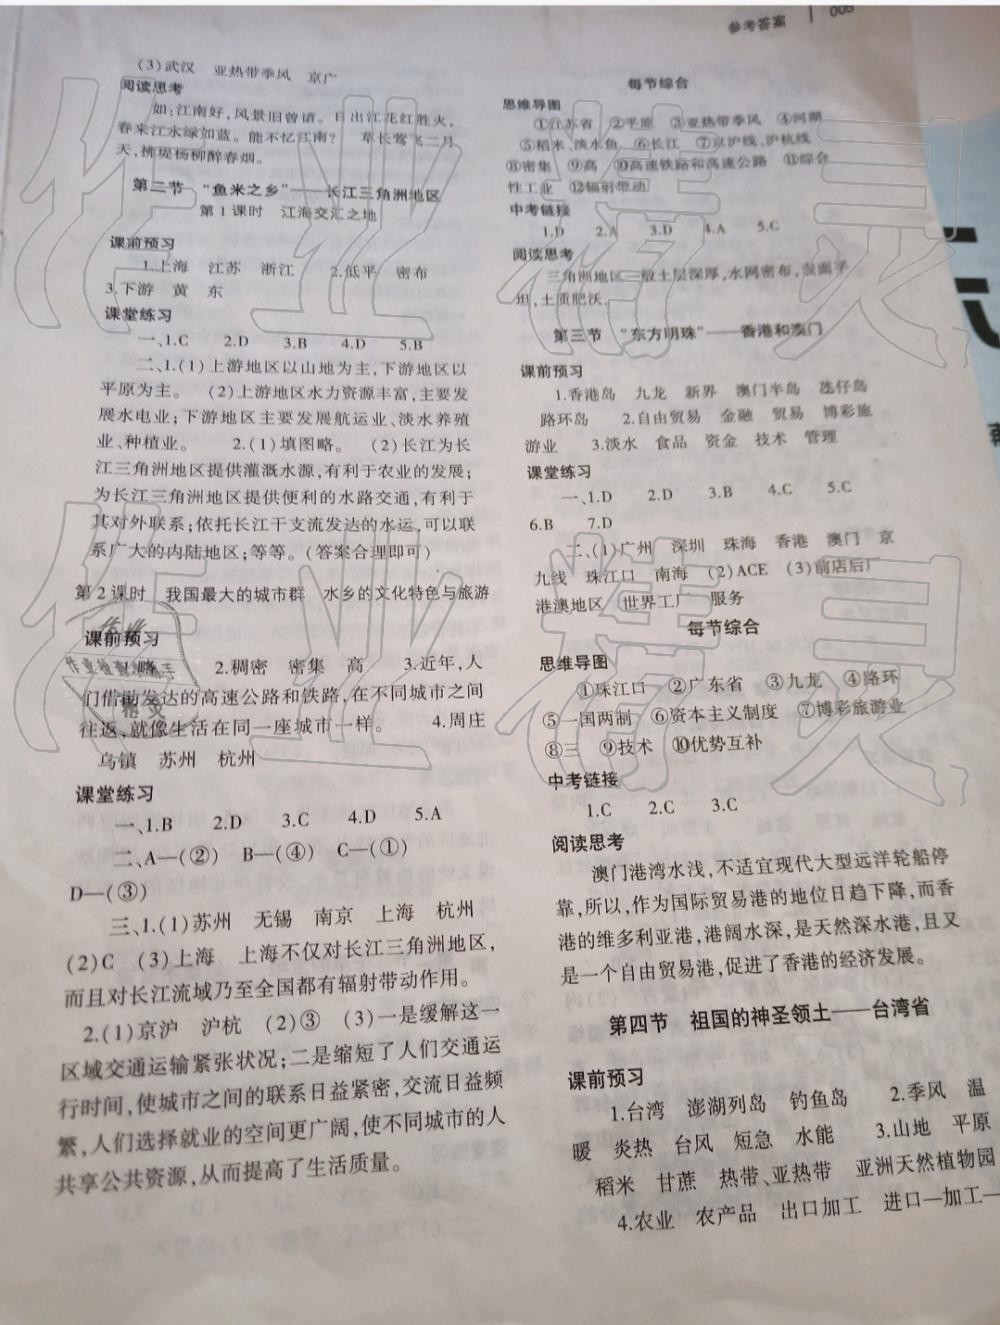 参考答案
(3)武汉 亚热带季风 京广
阅读思考
如:江南好,风景旧曾谙。日出江花红胜火,
春来江水绿如蓝。能不忆江南? 草长莺飞二月
天,拂堤杨柳醉春烟。
第二节 “鱼米之乡”——长江三角洲地区
第1课时 江海交汇之地
课前预习
1.上海 江苏 浙江 2.低平 密布
3.下游 黄 东
课堂练习
一、1.C 2.D 3.B 4.D 5.B
二、1.(1)上游地区以山地为主,下游地区以
平原为主。 (2)上游地区水力资源丰富,主要发
展水电业;下游地区主要发展航运业、淡水养殖
业、种植业。 2.(1)填图略。 (2)长江为长
江三角洲地区提供灌溉水源,有利于农业的发展;
为长江三角洲地区提供便利的水路交通,有利于
其对外联系;依托长江干支流发达的水运,可以联
系广大的内陆地区;等等。(答案合理即可)
第2课时 我国最大的城市群 水乡的文化特色与旅游
课前预习
1.略 2.稠密 密集 高 3.近年,人
们借助发达的高速公路和铁路,在不同城市之间
往返,就像生活在同一座城市一样。 4.周庄
乌镇 苏州 杭州
课堂练习
一、1.B 2.D 3.C 4.D 5.A
二、A—(②) B—(④) C—(①)
D—(③)
三、1.(1)苏州 无锡 南京 上海 杭州
(2)C (3)上海 上海不仅对长江三角洲地区,
而且对长江流域乃至全国都有辐射带动作用。
2.(1)京沪 沪杭 (2)③ (3)一是缓解这一
区域交通运输紧张状况;二是缩短了人们交通运
行时间,使城市之间的联系日益紧密,交流日益频
繁,人们选择就业的空间更广阔,使不同城市的人
共享公共资源,从而提高了生活质量。
每节综合
思维导图
①江苏省 ②平原 ③亚热带季风 ④河湖
⑤稻米、淡水鱼 ⑥长江 ⑦京沪线、沪杭线
⑧密集 ⑨高 ⑩高速铁路和高速公路 ⑪综合
性工业 ⑫辐射带动
中考链接
1.D 2.A 3.D 4.A 5.C
阅读思考
三角洲地区一般土层深厚,水网密布,表面平
坦,土质肥沃。
第三节 “东方明珠”——香港和澳门
课前预习
1.香港岛 九龙 新界 澳门半岛 氹仔岛
路环岛 2.自由贸易 金融 贸易 博彩旅
游业 3.淡水 食品 资金 技术 管理
课堂练习
一、1.D 2.D 3.B 4.C 5.C
6.B 7.D
二、(1)广州 深圳 珠海 香港 澳门 京
九线 珠江口 南海 (2)ACE (3)前店后厂
港澳地区 世界工厂 服务
每节综合
思维导图
①珠江口 ②广东省 ③九龙 ④路环
⑤一国两制 ⑥资本主义制度 ⑦博彩旅游业
⑧三 ⑨技术 ⑩优势互补
中考链接
1.C 2.C 3.C
阅读思考
澳门港湾水浅,不适宜现代大型远洋轮船停
靠,所以,作为国际贸易港的地位日趋下降,而香
港的维多利亚港,港阔水深,是天然深水港,且又
是一个自由贸易港,促进了香港的经济发展。
第四节 祖国的神圣领土——台湾省
课前预习
1.台湾 澎湖列岛 钓鱼岛 2.季风 温
暖 炎热 台风 短急 水能 3.山地 平原
稻米 甘蔗 热带、亚热带 亚洲天然植物园
4.农业 农产品 出口加工 进口—加工—